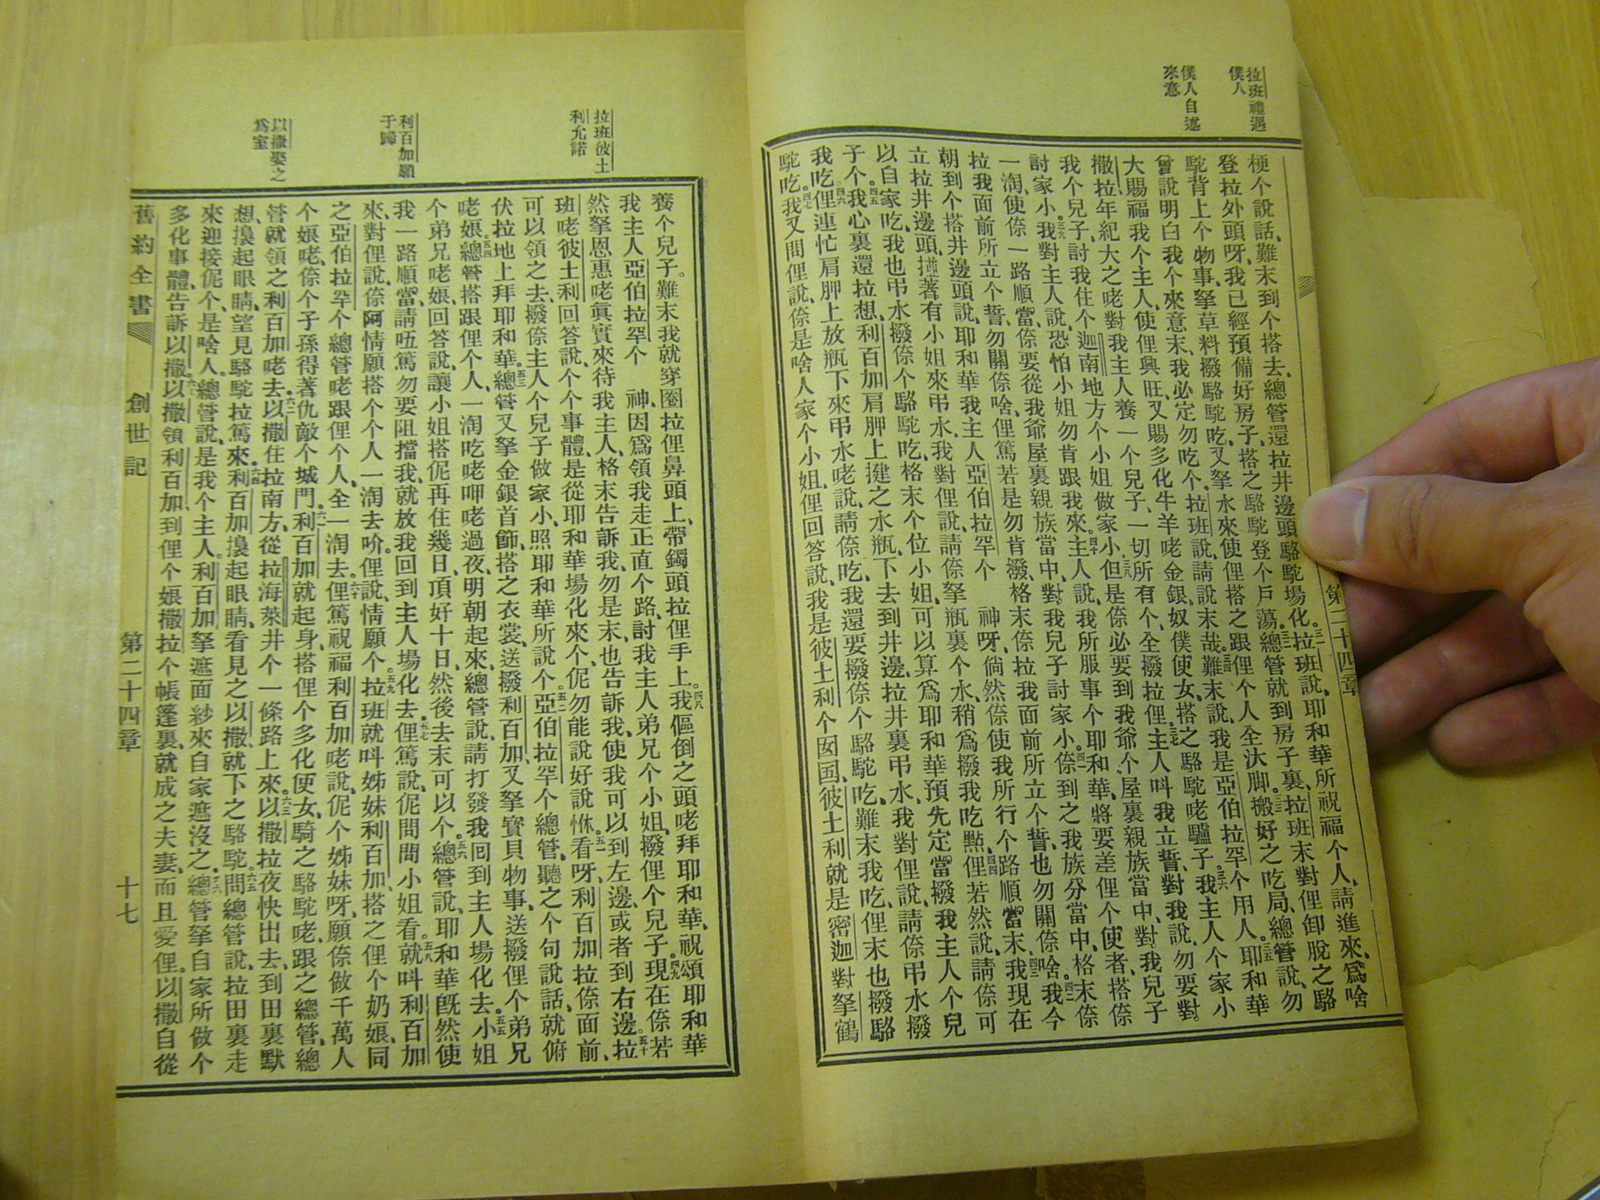 拉班禮遇
僕人
僕人自述
來意
第二十四章
梗个說話、難末到个搭去、總管還拉井邊頭駱駝場化。拉班說、耶和華所祝福个人、請進來、爲啥
登拉外頭呀、我已經預備好房子、搭之駱駝登个戶蕩。總管就到房子裏、拉班末對俚卸脫之駱
駝背上个物事、拏草料撥駱駝吃、又拏水來使俚搭之跟俚个人全汏脚。搬好之吃局、總管說、勿
曾說明白我个來意末、我必定勿吃个、拉班說、請說末哉。難末說、我是亞伯拉罕个用人。耶和華
大賜福我个主人、使俚興旺、又賜多化牛羊咾金銀、奴僕使女、搭之駱駝咾驢子。我主人个家小
撒拉、年紀大之咾對我主人養一个兒子、一切所有个、全撥拉俚。主人呌我立誓、對我說、勿要對
我个兒子討我住个迦南地方个小姐做家小。但是倷必要到我爺个屋裏親族當中、對我兒子
討家小。我對主人說、恐怕小姐勿肯跟我來。主人說、我所服事个耶和華、將要差俚个使者搭倷
一淘、使倷一路順當、倷要從我爺屋裏親族當中、對我兒子討家小。倷到之我族分當中、格末倷
拉我面前所立个誓、勿關倷啥、俚篤若是勿肯撥、格末倷拉我面前所立个誓、也勿關倷啥。我今
朝到个搭井邊頭說、耶和華我主人亞伯拉罕个　神呀、倘然倷使我所行个路順當末、我現在
立拉井邊頭、撞著有小姐來弔水、我對俚說、請倷拏瓶裏个水、稍爲撥我吃點。俚若然說、請倷可
以自家吃、我也弔水撥倷个駱駝吃、格末个位小姐、可以算爲耶和華預先定當撥我主人个兒
子个。我心裏還拉想、利百加肩胛上揵之水瓶、下去到井邊、拉井裏弔水、我對俚說、請倷弔水撥
我吃。俚連忙肩胛上放瓶下來弔水咾說、請倷吃、我還要撥倷个駱駝吃、難末我吃、俚末也撥駱
駝吃。我又問俚說、倷是啥人家个小姐、俚回答說、我是彼土利个囡囝、彼土利就是密迦對拏鶴
拉班彼土
利允諾
利百加願
于歸
以撒娶之
爲室
養个兒子。難末我就穿圈拉俚鼻頭上、帶鐲頭拉俚手上。我傴倒之頭咾拜耶和華、祝頌耶和華
我主人亞伯拉罕个　神、因爲領我走正直个路、討我主人弟兄个小姐、撥俚个兒子。現在倷若
然拏恩惠咾眞實來待我主人、格末告訴我、勿是末、也告訴我、使我可以到左邊、或者到右邊。拉
班咾彼土利回答說、个个事體是從耶和華場化來个、伲勿能說好說恘。看呀、利百加拉倷面前、
可以領之去、撥倷主人个兒子做家小、照耶和華所說个。亞伯拉罕个總管、聽之个句說話、就俯
伏拉地上拜耶和華。總管又拏金銀首飾、搭之衣裳、送撥利百加、又拏寶貝物事、送撥俚个弟兄
咾娘。總管搭跟俚个人、一淘吃咾呷咾過夜、明朝起來、總管說、請打發我回到主人場化去。小姐
个弟兄咾娘、回答說、讓小姐搭伲再住幾日、頂好十日、然後去末可以个。總管說、耶和華旣然使
我一路順當、請唔篤勿要阻擋我、就放我回到主人場化去。俚篤說、伲問問小姐看。就呌利百加
來、對俚說、倷阿情願搭个个人一淘去吤、俚說、情願个。拉班就呌姊妹利百加、搭之俚个奶娘、同
之亞伯拉罕个總管咾跟俚个人、全一淘去。俚篤祝福利百加咾說、伲个姊妹呀、願倷做千萬人
个娘咾、倷个子孫得著仇敵个城門。利百加就起身、搭俚个多化使女、騎之駱駝咾、跟之總管、總
管就領之利百加咾去。以撒住拉南方、從拉海萊井个一條路上來。以撒拉夜快出去、到田裏默
想、擡起眼睛、望見駱駝拉篤來。利百加擡起眼睛、看見之以撒、就下之駱駝。問總管說、拉田裏走
來迎接伲个、是啥人、總管說、是我个主人、利百加拏遮面紗來自家遮沒之。總管拏自家所做个
多化事體、告訴以撒。以撒領利百加、到俚个娘撒拉个帳篷裏、就成之夫妻、而且愛俚。以撒自從
舊約全書　創世記　第二十四章　十七